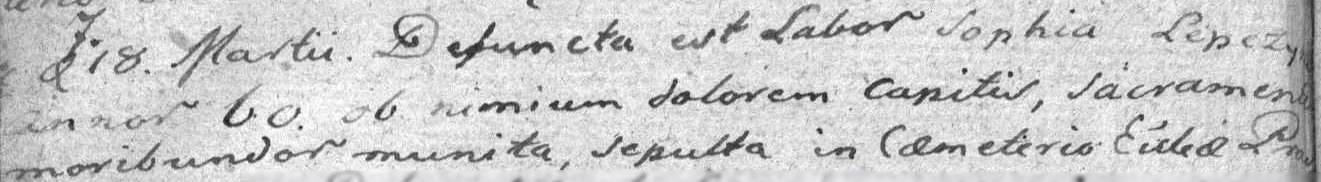 18. Martii. Defuncta est Labor Sophia Lepczy
annor 60. ob nimium dolorem capitis, sacramen
moribundor munita, sepulta in Cæmeterio Eccl̄æ